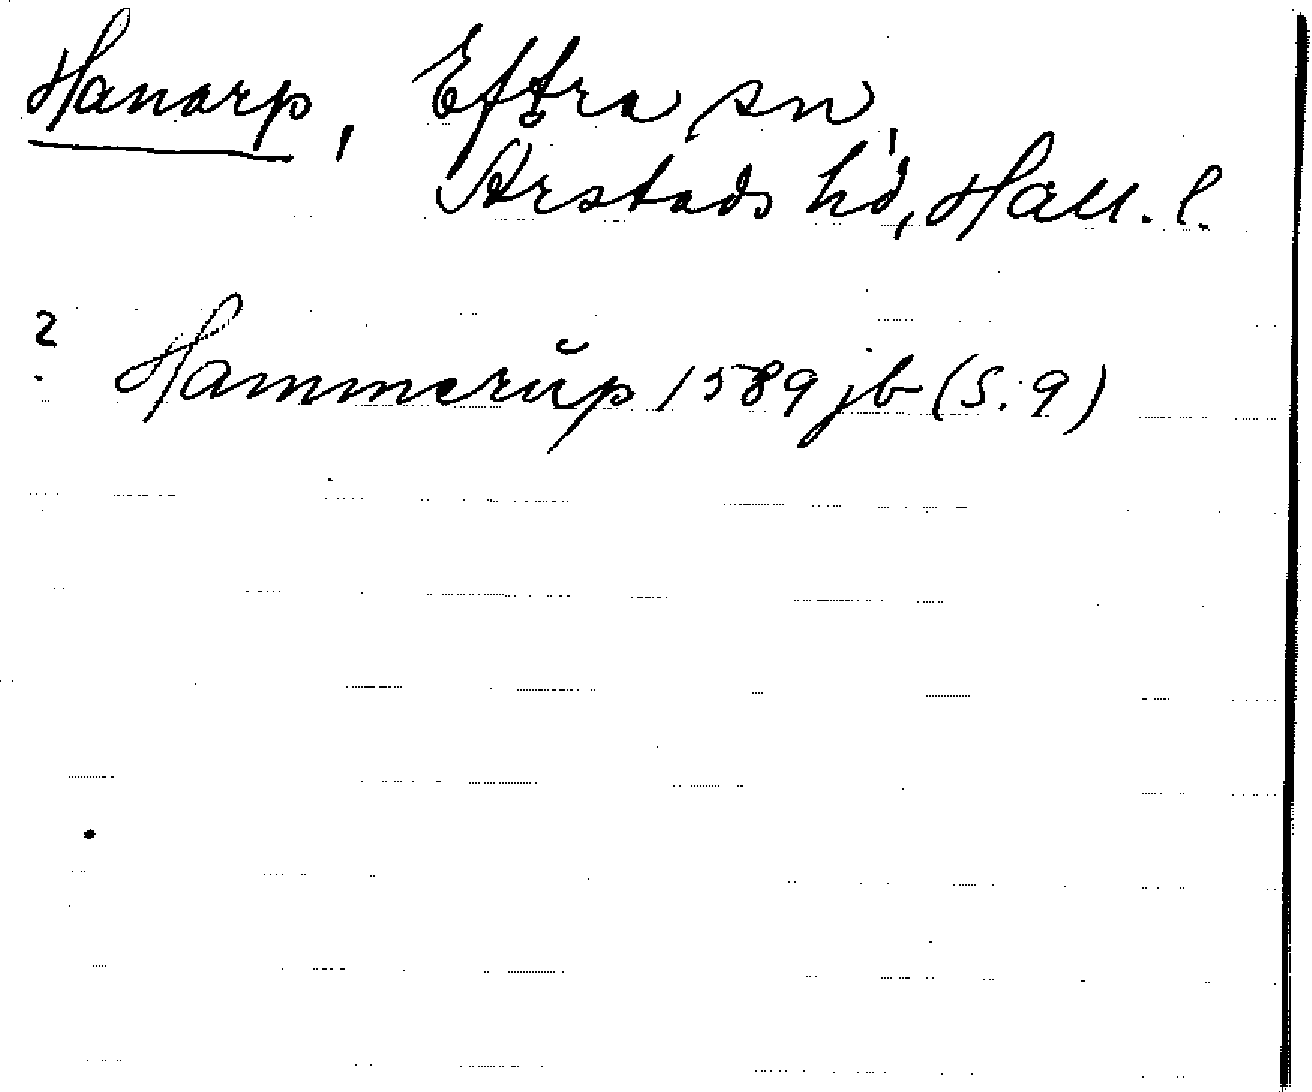 Hanarp, Eftra sn,
Årstads hd, Hall. l.
? Hammerŭp 1589 jb (S. 9)